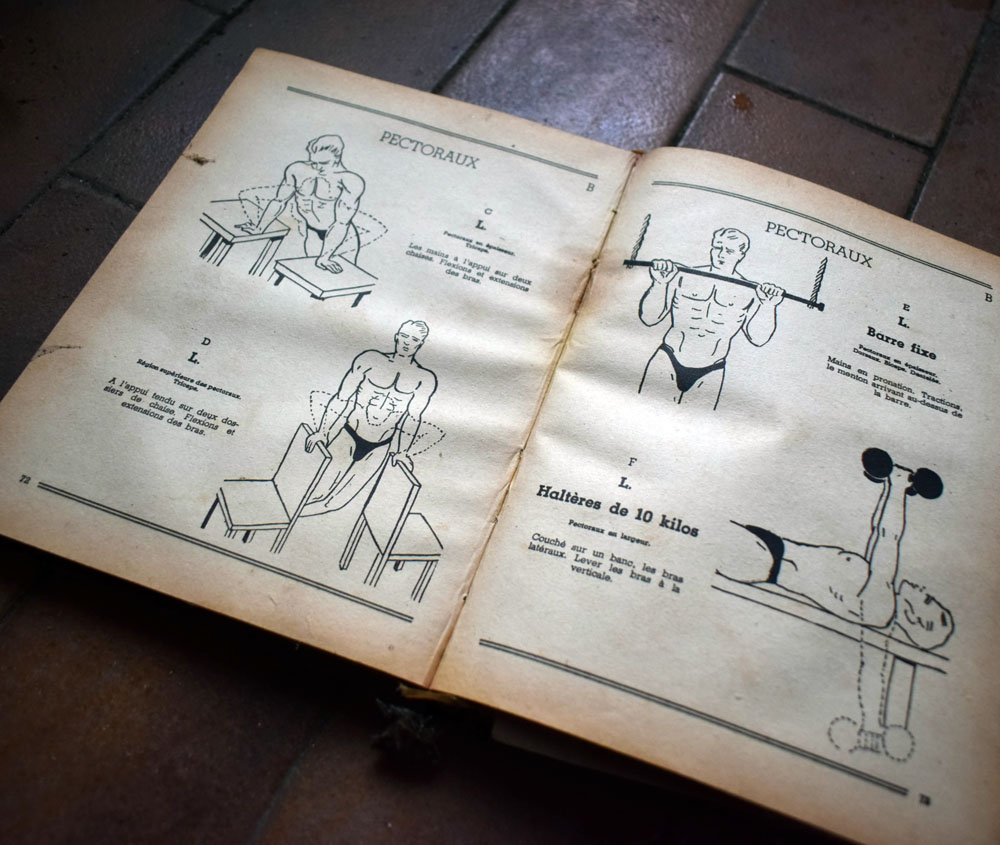 PECTORAUX
B
C
L.
Pectoraux en épaisseur.
Triceps.
Les mains à l'appui sur deux
chaises. Flexions et extensions
des bras.
D
L.
Région supérieure des pectoraux.
Triceps.
A l'appui tendu sur deux dos-
siers de chaise. Flexions et
extensions des bras.
72
PECTORAUX
B
E
L.
Barre fixe
Pectoraux en épaisseur.
Dorsaux. Biceps. Dentelés.
Mains en pronation. Tractions,
le menton arrivant au-dessus de
la barre.
F
L.
Haltères de 10 kilos
Pectoraux en largeur.
Couché sur un banc, les bras
latéraux. Lever les bras à la
verticale.
73